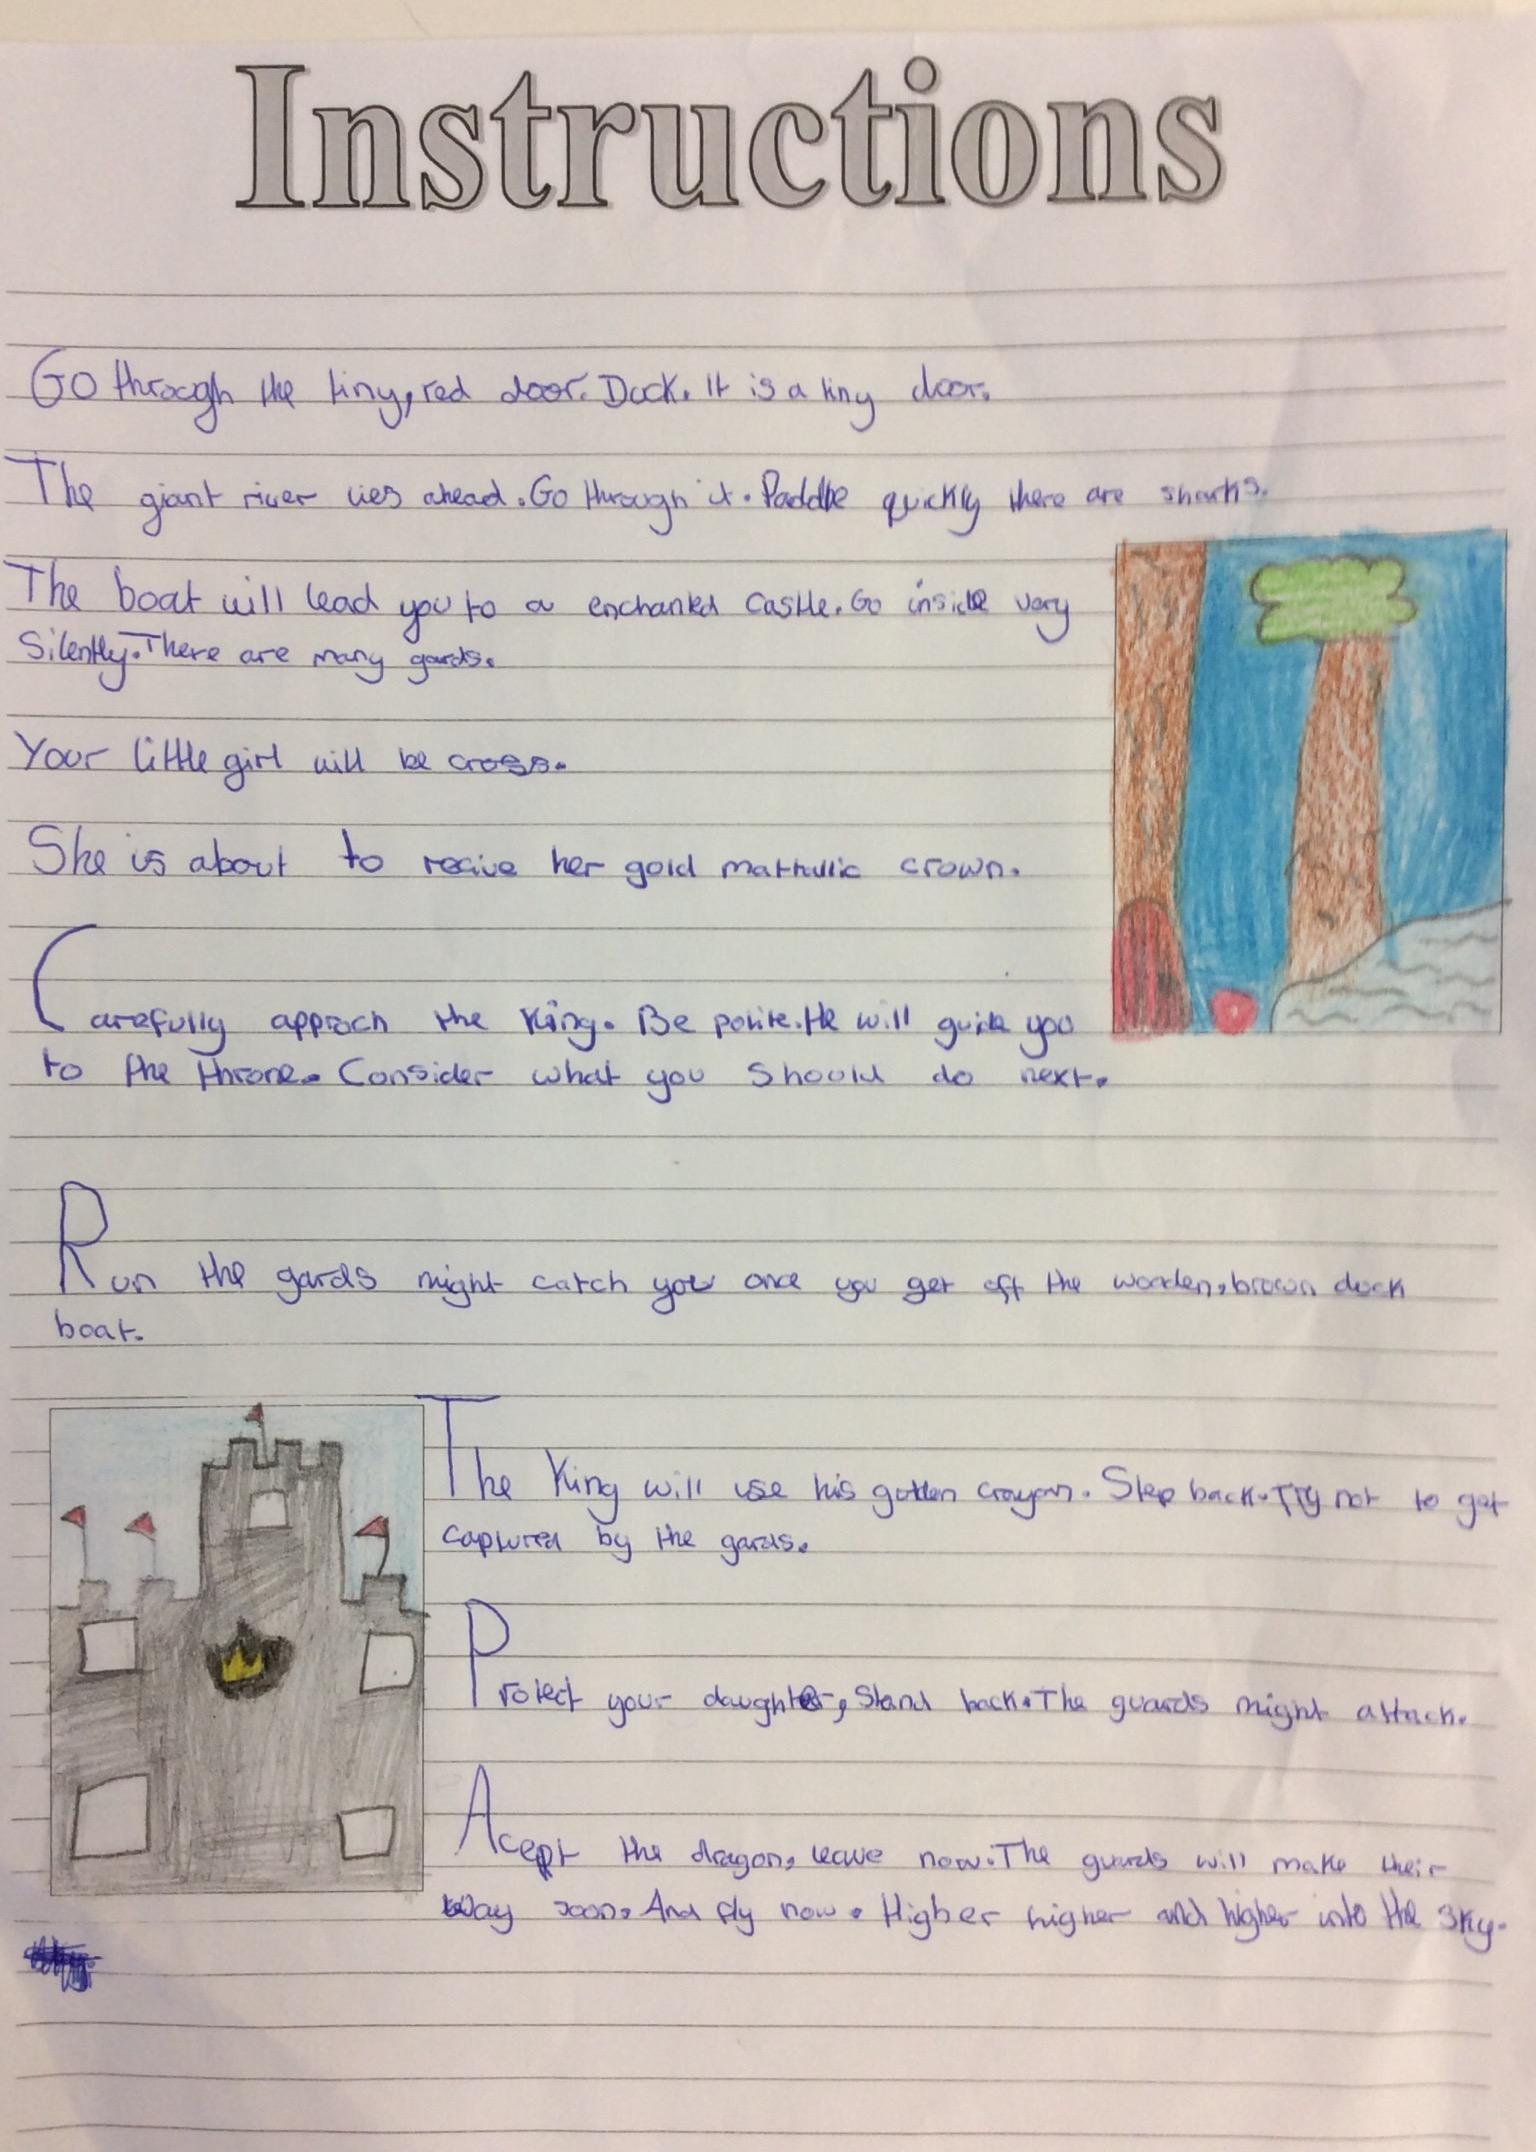 Instructions
Go through the tiny, red door. Duck. It is a tiny door.
The giant river lies ahead. Go through it. Paddle quickly there are sharks.
The boat will lead you to a enchanted castle. Go inside very
Silently. There are many gards.
Your little girl will be cross.
She is about to recive her gold mattullic crown.
Carefully approch the King. Be polite. He will guide you
to the throne. Consider what you should do next.
Run the gards might catch you once you get off the wooden, brown duck
boat.
The King will use his golden crayon. Step back. Try not to get
captured by the gards.
Protect your daughter, Stand back. The guards might attack.
Acept the dragon, leave now. The guards will make their
way soon. And fly now. Higher higher and higher into the sky.